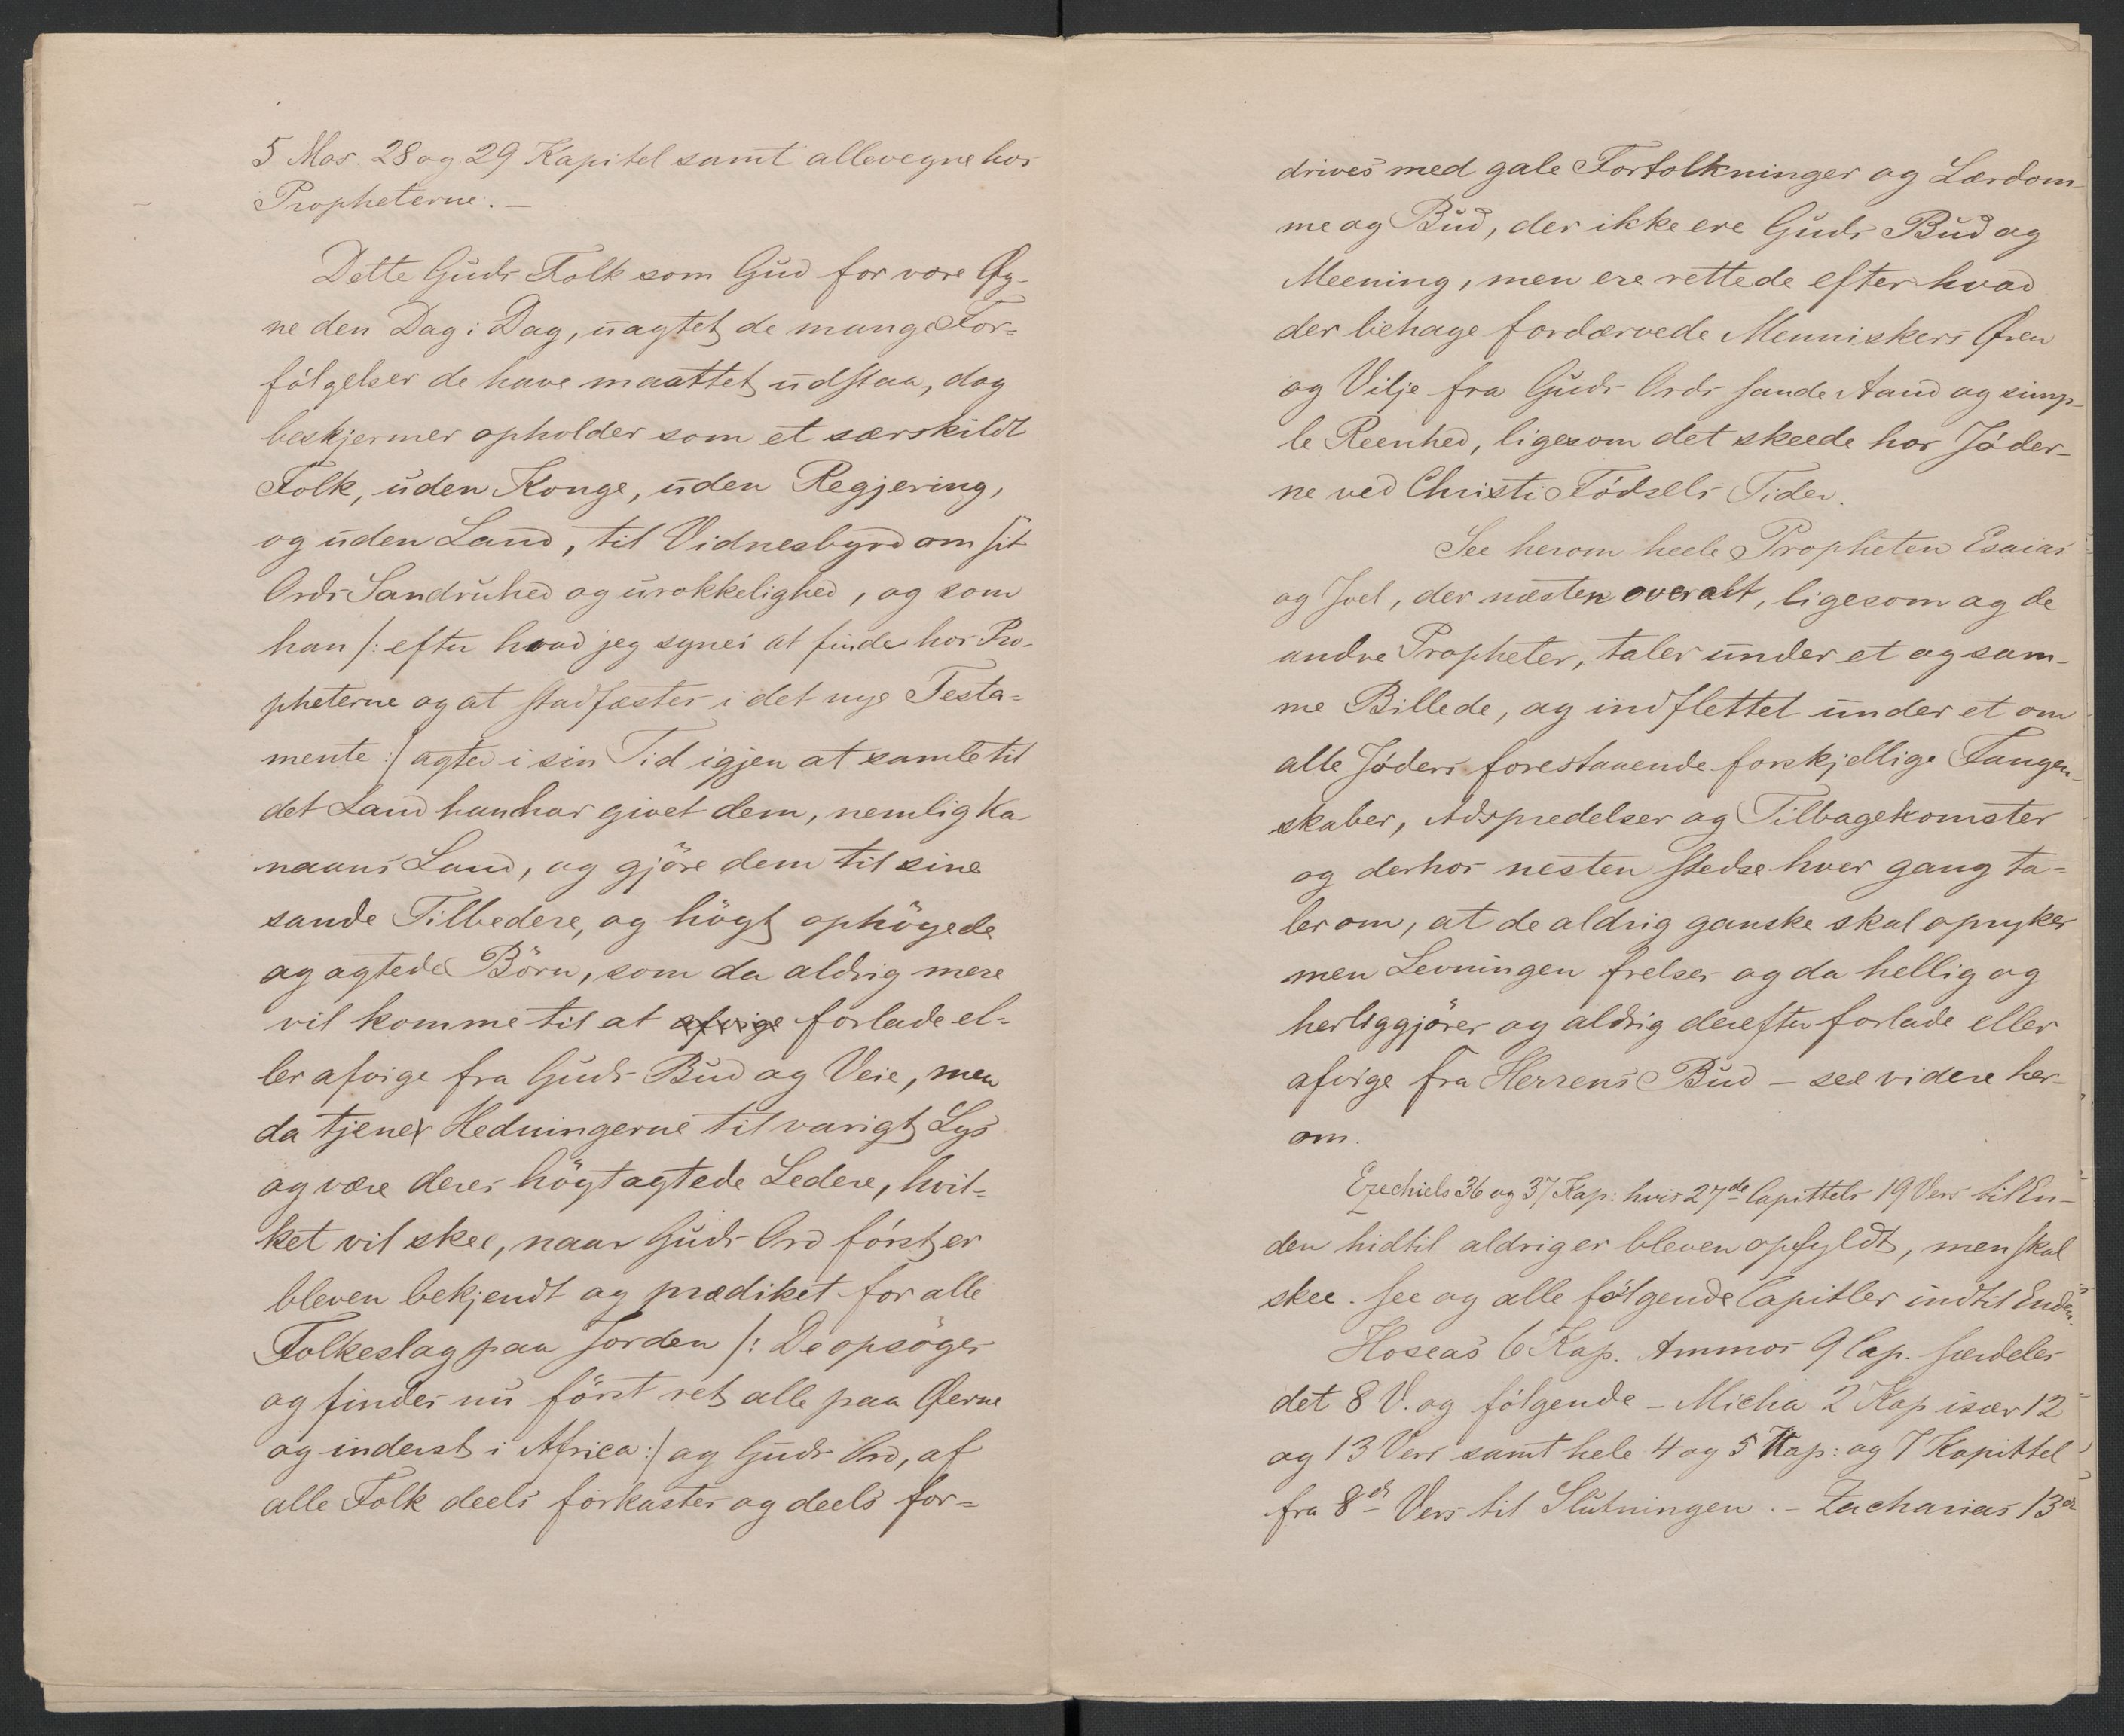 5 Mos. 28 og 29 Kapitel samt allevegne hos
Propheterne. —
Dette Guds Folk som Gud for vore Øy-
ne den Dag i Dag, uagtet de mange For=
fölgelser de have maattet udstaa, dog
beskjermer opholder som et særskildt
Folk, uden Konge, uden Regjering,
og uden Land, til Vidnesbyrd om sit
Ords Sandruhed og urokkelighed, og som
han /: efter hvad jeg synes at finde hos Pro-
pheterne og at stadfæster i det nye Testa=
mente :/ agter i sin Tid igjen at samle til
det Land han har givet dem, nemlig Ka
naans Land, og gjöre dem til sine
sande Tilbedere, og högt ophögede
og agtede Börn, som da aldrig mere
vil komme til at afvige forlade el=
ler afvige fra Guds Bud og Veie, men
da tjener Hedningerne til varigt Lys
og være deres högtagtede Ledere, hvil=
ket vil skee, naar Guds Ord först er
bleven bekjendt og prædiket for alle
Folkeslag paa Jorden /: De opsöges
og findes nu först ret alle paa Øerne
og inderst i Africa :/ og Guds Ord, af
alle Folk deels forkastes og deels for=
drives med gale Fortolkninger og Lærdom-
me og Bud, der ikke ere Guds Bud og
Meening, men ere rettede efter hvad
der behage fordærvede Menniskers Øren
og Vilje fra Guds Ords sande Aand og simp-
le Reenhed, ligesom det skeede hos Jöder-
ne ved Christi Födsels Tider.
See herom heele Propheten Esaias
og Joel, der næsten overalt, ligesom og de
andre Propheter, taler under et og sam-
me Billede, og indflettet under et om
alle Jöders forestaaende forskjellige Fangen-
skaber, Adspredelser og Tilbagekomster
og derhos nesten stedse hver gang ta=
ler om, at de aldrig ganske skal oprykes
men Levningen frelses og da hellig og
herliggjöres og aldrig derefter forlade eller
afvige fra Herrens Bud — see videre her-
om.
Ezechiels 36 og 37 Kap: hvis 27de Capittels 19 Vers til En-
den hidtil aldrig er bleven opfyldt, men skal
skee. see og alle fölgende Capitler indtil Enden.
Hoseas 6 Kap. Ammos 9 Cap. særdeles
det 8 V. og fölgende — Micha 2 Kap især 12
og 13 Vers samt hele 4 og 5 Kap: og 7 Kapittel
fra 8de Vers til Slutningen. — Zacharias 13de